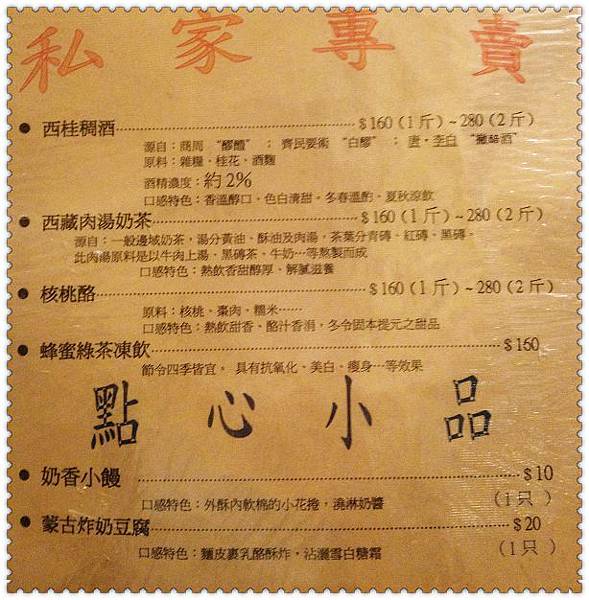 私家專賣
● 西桂稠酒……$160（1斤）~ 280（2斤）
源自：商周 “醪醴” ； 齊民要術 “白醪” ； 唐・李白
原料：雜糧、桂花、酒麴
酒精濃度：約2%
口感特色：香溫醇口、色白清甜、冬春溫酌、夏秋涼飲
● 西藏肉湯奶茶……$160（1斤）~ 280（2斤）
源自：一般邊域奶茶，湯分黃油、酥油及肉湯，茶葉分青磚、紅磚、黑磚。
此肉湯原料是以牛肉上湯、黑磚茶、牛奶…等熬製而成
口感特色：熱飲香甜醇厚、解膩滋養
● 核桃酪……$160（1斤）~ 280（2斤）
原料：核桃、棗肉、糯米……
口感特色：熱飲甜香、酪汁香濃，冬令固本提元之甜品
● 蜂蜜綠茶凍飲……$160
節令四季皆宜， 具有抗氧化、美白、瘦身…等效果
點心小品
● 奶香小饅……$10
口感特色：外酥內軟棉的小花捲，澆淋奶醬 （1只）
● 蒙古炸奶豆腐……$20
口感特色：麵皮裹乳酪酥炸，沾灑雪白糖霜 （1只）